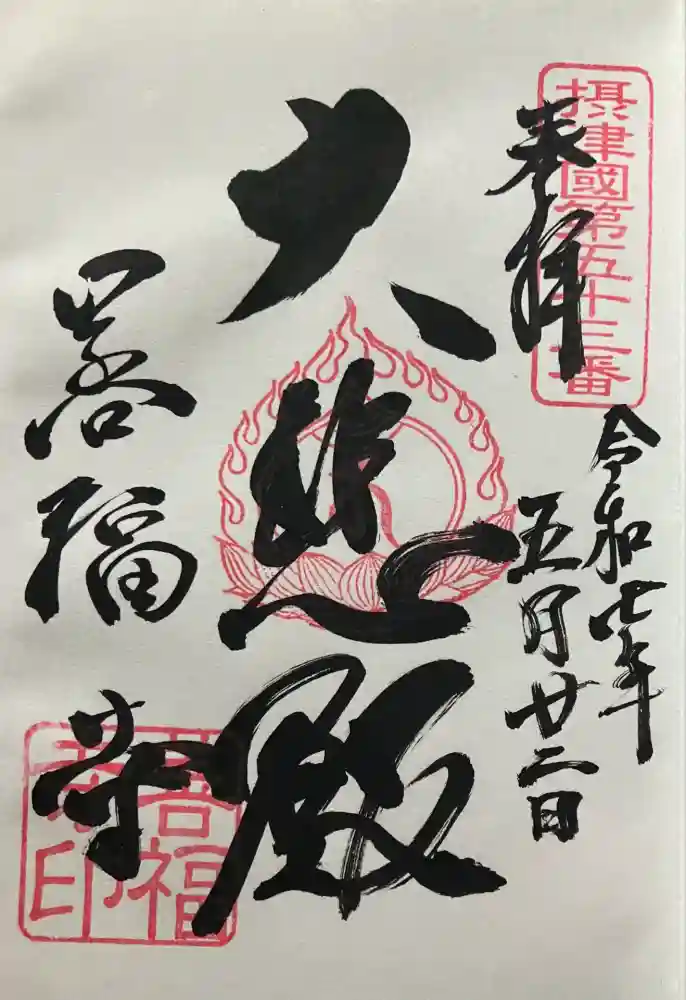 摂津國第五十三番
奉拝
令和七年
五月廿二日
大悲殿
福寺
福
寺印